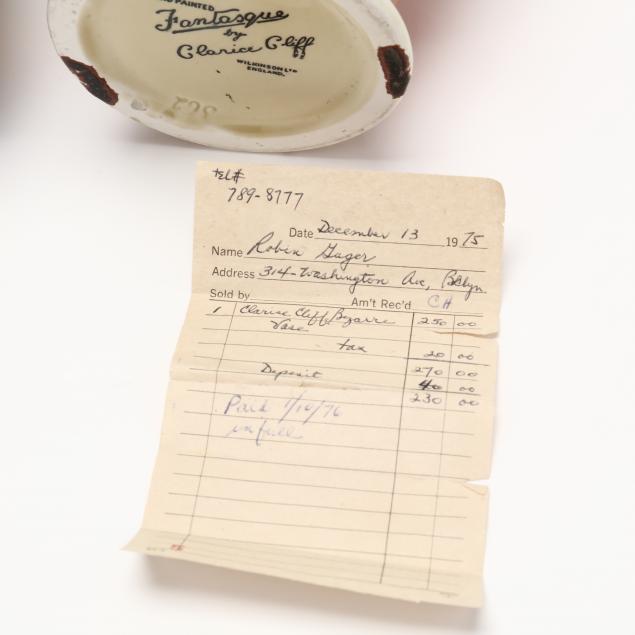 PAINTED
Fantasque
by
Clarice Cliff
WILKINSON LTD
ENGLAND.
362
tel#
789-8777
Date December 13 1975
Name Robin Gager
Address 314-Washington Av, Bklyn
Sold by Am't Rec'd CH
1 Clarice Cliff Bizarre 250 00
Vase
tax 20 00
270 00
Deposit 40 00
230 00
Paid 1/10/76
in full